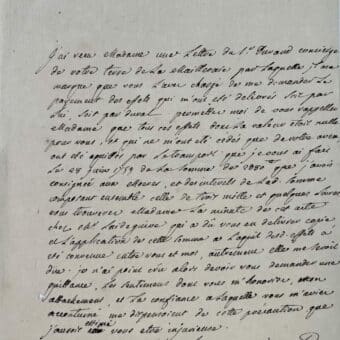 J'ai reçu Madame une Lettre de Sr Durand concierge
de votre terre de La Mailleraie par Laquelle il me
marque que vous L'avez chargé de me demander Le
payement des effets qui m'ont été delivrés soit par
Lui, soit par duval. permettez moi de vous rappeller
Madame que tous ces effets dont La valeur étoit nulle
pour vous, et qui ne m'ont été cédés que de votre aveu
ont été acquittés par Le transport que je vous ai fait
Le 28 juin de La somme de que j'avois
consignée aux et des interets de Lad. somme
composant ensemble celle de trois mille et quelques Livres
vous trouverez Madame La minute de cet acte
chez Me Laideguive qui a dû vous en delivrer copie
et L'application de cette somme a L'aquit desd. effets a
été convenue entre vous et moi, autrement elle me seroit
due. je n'ai point cru alors devoir vous demander une
quittance, Les sentimens dont vous m'honoriez, mon
attachement, et La confiance a Laquelle vous m'aviez
accoutumé me dispensoient de cette precaution que
j'aurois vous etre injurieuse.